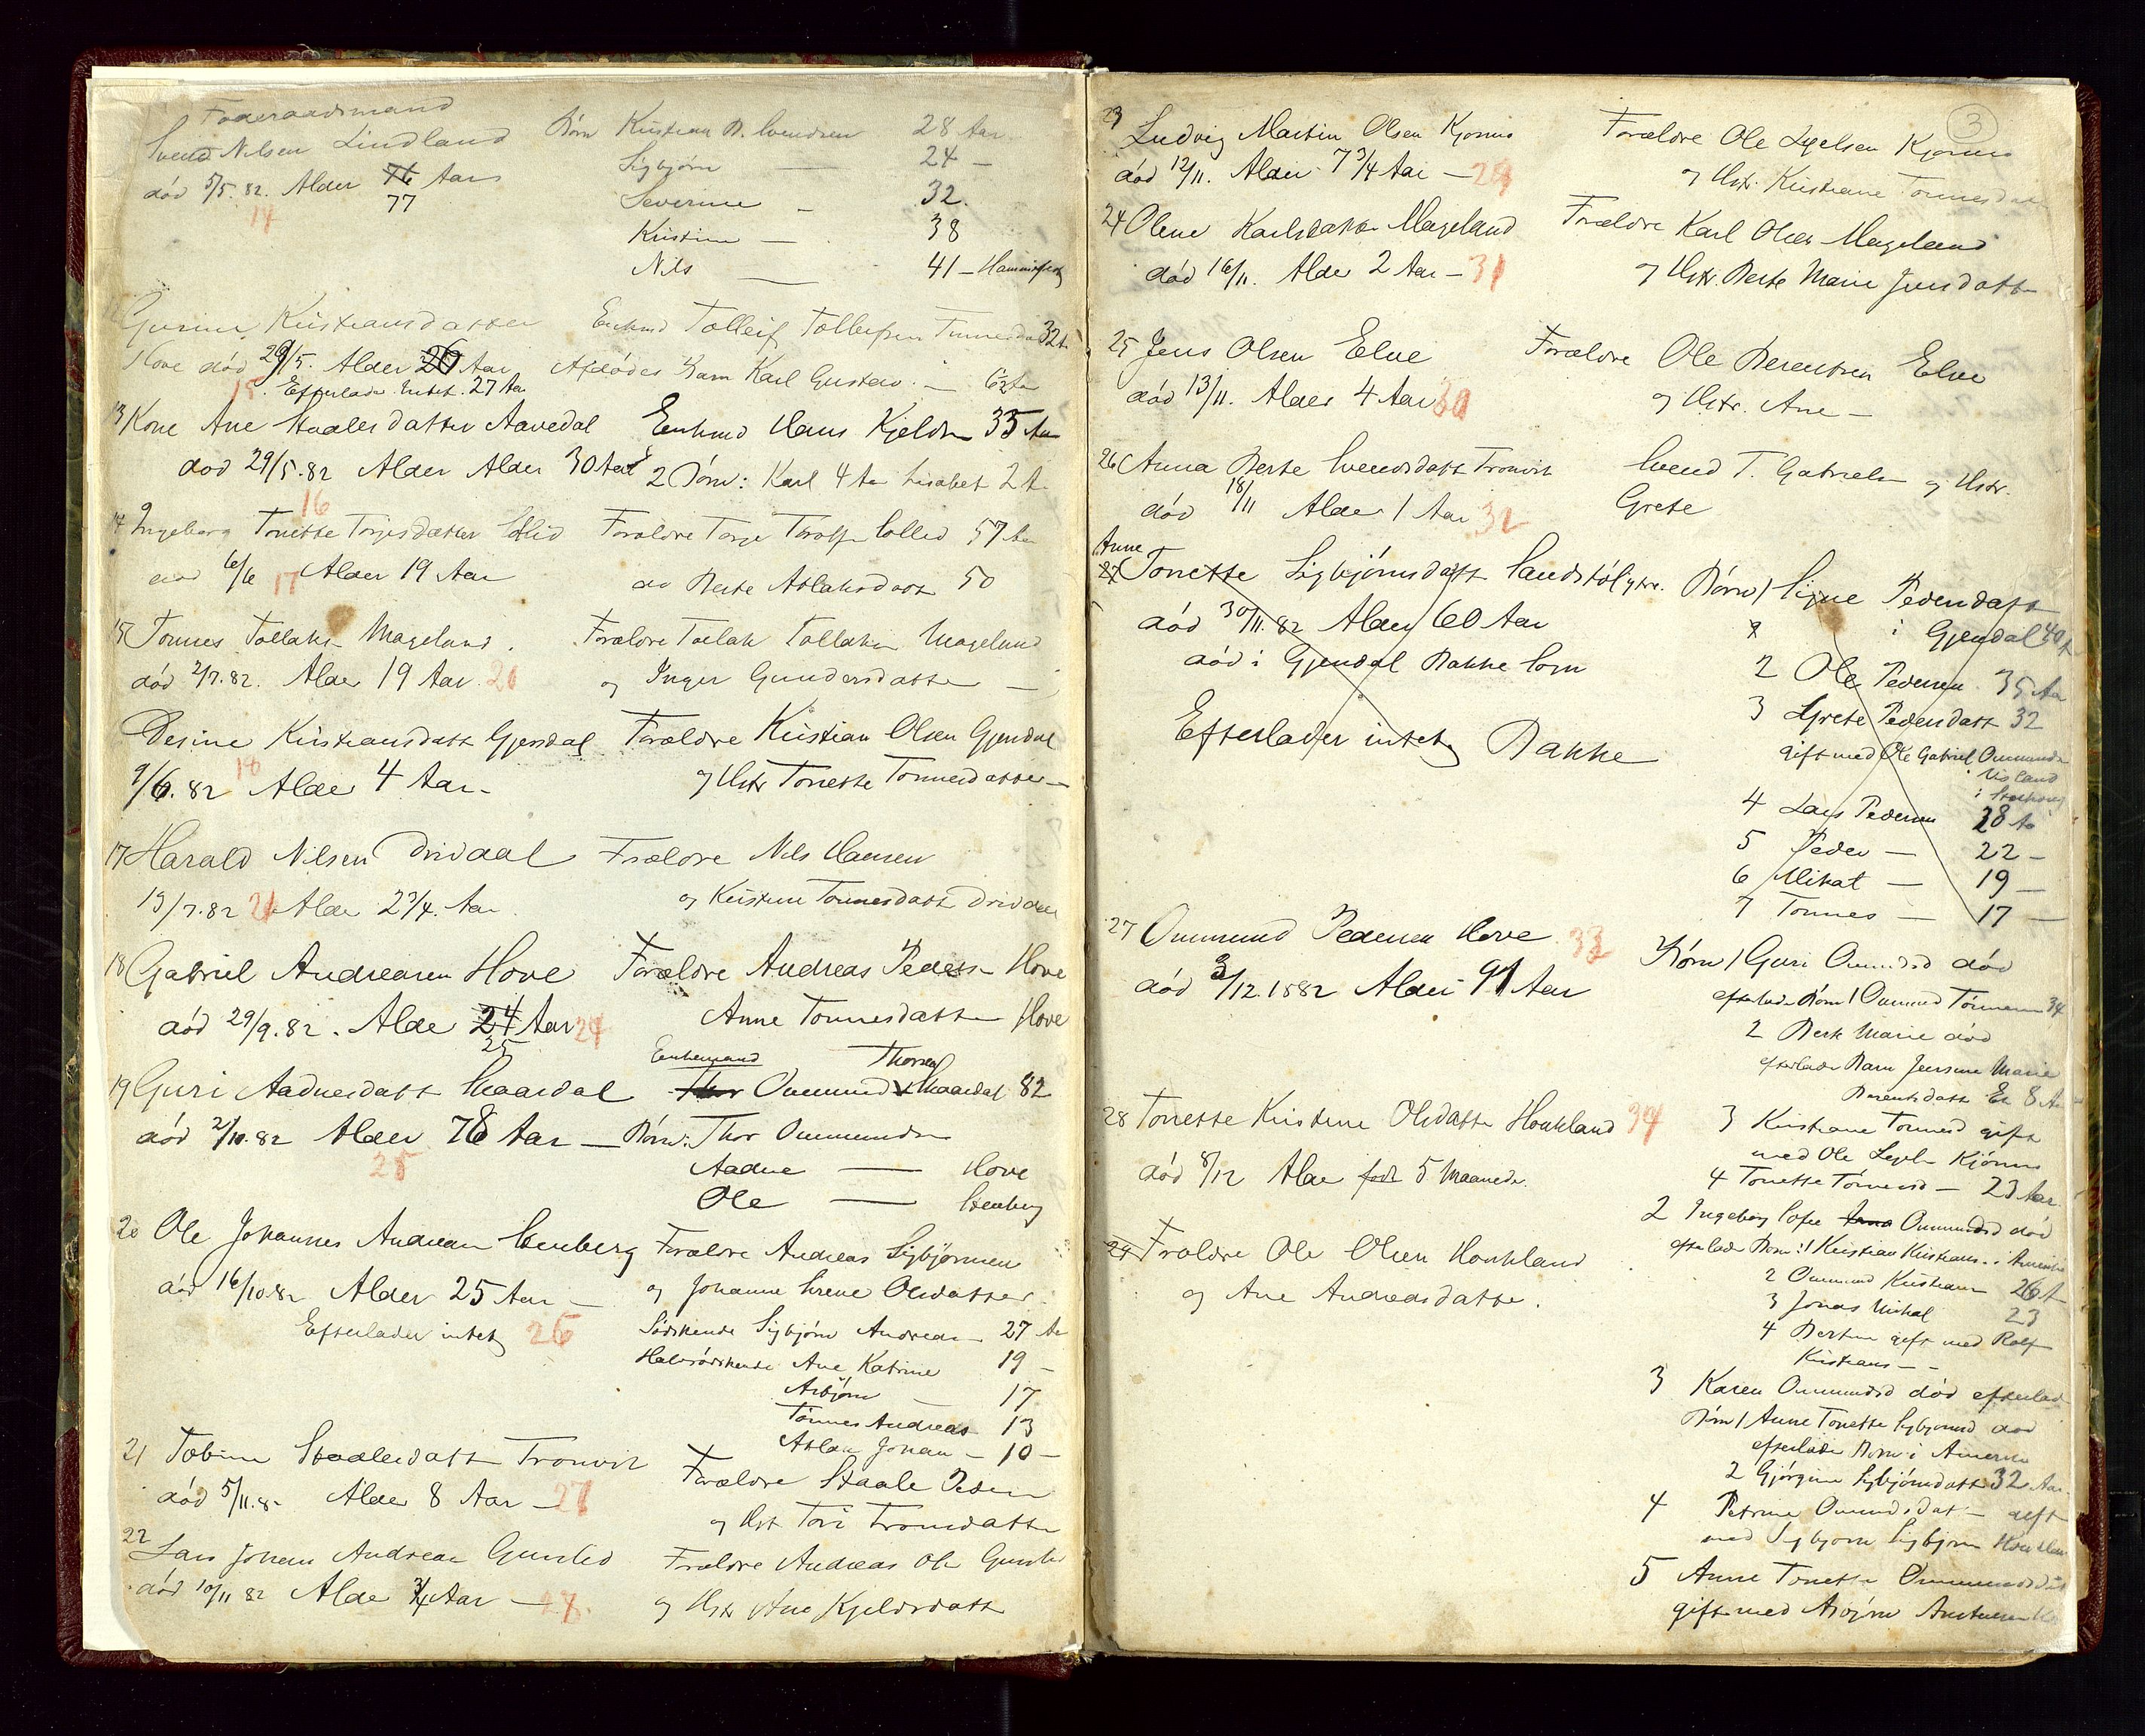 Foderaadsmand
Svend Nilsen Lindland Børn Kristian B. Svendsen 28 Aar
død 5/5. 82. Alder 76 Aar Sigbjørn — 24 —
77
14
Severine — 32.
Kristine — 38
Nils — 41 — Hammerfest
Gurine Kristiansdatter Enkmd Tolleif Tollefsen Tunnesdal 32
Hove død 29/5. Alder 26 Aar Afdødes Barn Karl Gustav. —
15. Efterlader Intet. 27 Aar
13 Kone Ane Staalesdatter Aavedal Enkmd Hans Kjelds 35 Aar
død 29/5.82 Alder Alder 30 Aar 2 Børn: Karl 4 Aar Lisabet 2 A
16
14 Ingeborg Tonette Torjesdatter Forældre Torje 57 Aar
død 6/6 17 Alder 19 Aar do Berte Aslaksdatt 50
15 Tønnes Tollaks Mageland. Forældre Tollak Tollaksen Mageland
død 2/7.82. Alder 19 Aar. 20 og Inger Gundersdatter —
Desine Kristiansdatt Gjendal Forældre Kristian Olsen Gjendal
9/6.82 18 Alder 4 Aar — og Hstr Tonette Tønnesdatter —
17 Harald Nilsen Dridaal Forældre Nils Hansen
19/7.82 21 Alder 2 3/4. Aar og Kristine Tønnesdatt Dridaal
18 Gabriel Andreasen Hove Forældre Andreas Peders Hove
død 29/9.82. Alder 24 Aar 24 Anne Tønnesdatter Hove
25
Enkemand Thorsen
19 Guri Aadnesdatt Skaardal Thor Ommund Skaardal 82
død 2/10.82 Alder 78 Aar — Børn: Thor Ommunds
25
Aadne — Hove
Ole — Stenberg
20 Ole Johannes Andreasen Stenberg Forældre Andreas Sigbjørnsen
død 16/10.82 Alder 25 Aar — og Johanne Serene Olsdatter
Efterlader intet 26 Sødskende Sigbjørn Andreas 27 Aar
Halvsødskende Ane Katrine 19 —
Asbjørn — 17
Tønnes Andreas 13
Aslak Johan — 10 —
21 Tobine Staalesdatt Tronvik Forældre Staale Peders
død 5/11.8- Alder 8 Aar — 27 og Hst Tori Tronsdatter
22 Lars Johan Andreas Gunsled Forældre Andreas Ols
død 10/11 82 Alder 3/4 Aar — 28. og Hstr Ane Kjeldsdatt
3
23 Ludvig Martin Olsen Kjørnes Forældre Ole Kjørnes
død 12/11. Alder 7 3/4 Aar — 29 og Hstr. Kristiane Tønnesdat
24 Olene Karlsdatter Mageland Forældre Karl Olsen Mageland
død 16/11. Alder 2 Aar — 31 og Hstr. Berte Marie Jensdatter
25 Jens Olsen Elve Forældre Ole Berentsen Elve
død 13/11. Alder 4 Aar 30 og Hstr. Ane —
26 Anna Berte Svendsdatt Tronvik Svend T. Gabriels og Hstr.
død 18/11 Alder 1 Aar 32 Grete
Anne
27 Tonette Sigbjørnsdatt Børn 1 Signe Pedersdatt
død 30/11.82 Alder 60 Aar i Gjendal 40
død i Gjendal Bakke Sogn 2 Ole Pedersen 35 Aar
Efterlader intet Bakke 3 Grete Pedersdatt 32
gift med Ole Gabriel Ommunds
4 Lars Pedersen 28 A
5 Peder — 22 —
6 Mikal — 19 —
7 Tønnes — 17 —
27 Ommund Pedersen Hove 33 Børn 1 Guri Ommdsd død
død 3/12.1882 Alder 91 Aar efterlader Børn 1 Ommund Tønnesen 34
2 Berte Marie død
efterlader Barn Marie
Berentsdatt 8
28 Tonette Kristine Olsdatter Houkland 34 3 Kristiane Tønnesd gift
død 8/12 Alder født 5 Maaneder. med Ole Kjørnes
4 Tonette Tønnesd — 23 Aar
29 Forældre Ole Olsen Houkland 2 Ingeborg Sofie Ommundsd død
og Ane Andreasdatter. efterlader Børn: 1 Kristian Kristians. i Amerika
2 Ommund Kristiansen 26 A
3 Jonas Mikal 23
4 Bertine gift med Rolf
Kristians — —
3 Karen Ommundsd død efterlad
Børn 1 Anne Tonette Sigbjørnsd død
efterlader Børn i Amerika
2 Gjørgine Sigbjørnsdatt 32 Aar
4 Petrine Ommdsdat — gift
med Sigbjørn Sigbjørns Houkland
5 Anne Tonette Ommundsdat
gift med Asbjørn